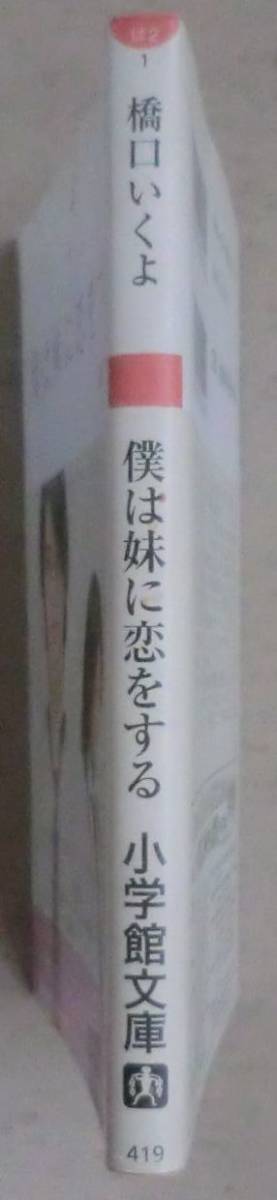 は2
1
橋口いくよ
僕は妹に恋をする
小学館文庫
419